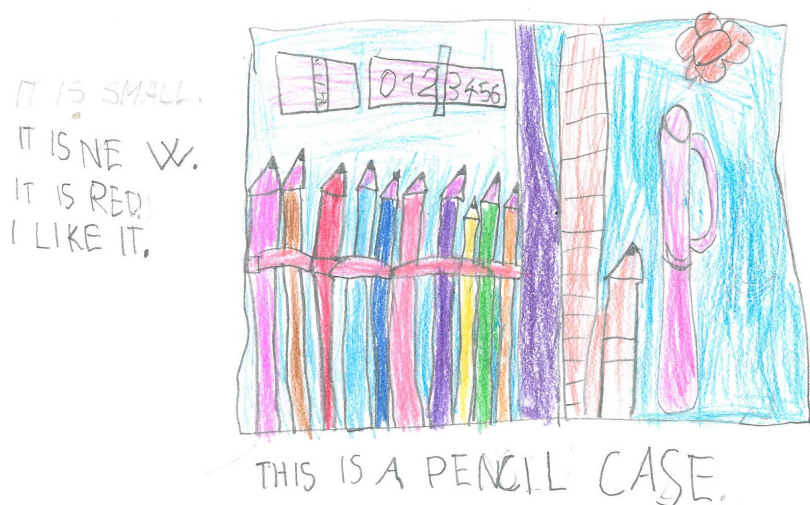 IT IS SMALL.
IT IS NEW.
IT IS RED.
I LIKE IT.
0123456
THIS IS A PENCIL CASE.